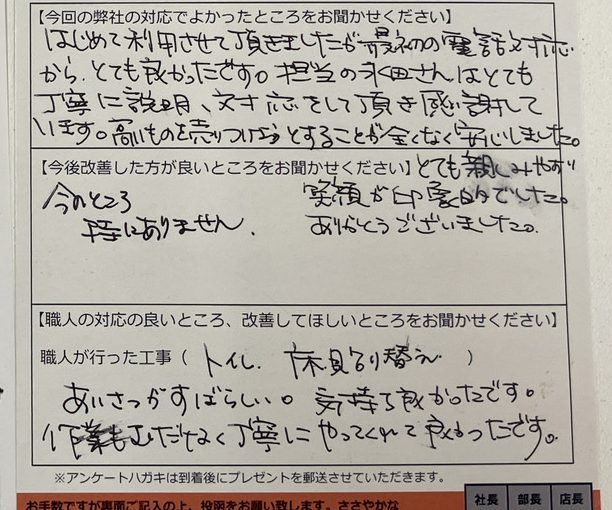 【今回の弊社の対応でよかったところをお聞かせください】
はじめて利用させて頂きましたが最初の電話対応
から、とても良かったです。担当の永田さんはとても
丁寧に説明、対応をして頂き感謝して
います。高いものを売りつけようとすることが全くなく安心しました。
【今後改善した方が良いところをお聞かせください】とても親しみやすい
今のところ 笑顔が印象的でした。
特にありません。 ありがとうございました。
【職人の対応の良いところ、改善してほしいところをお聞かせください】
職人が行った工事（トイレ、床貼り替え）
あいさつがすばらしい。気持ち良かったです。
作業もむだなく丁寧にやってくれて良かったです。
※アンケートハガキは到着後にプレゼントを郵送させていただきます。
お手数ですが裏面ご記入の上、投函をお願い致します。ささやかな
社長 部長 店長